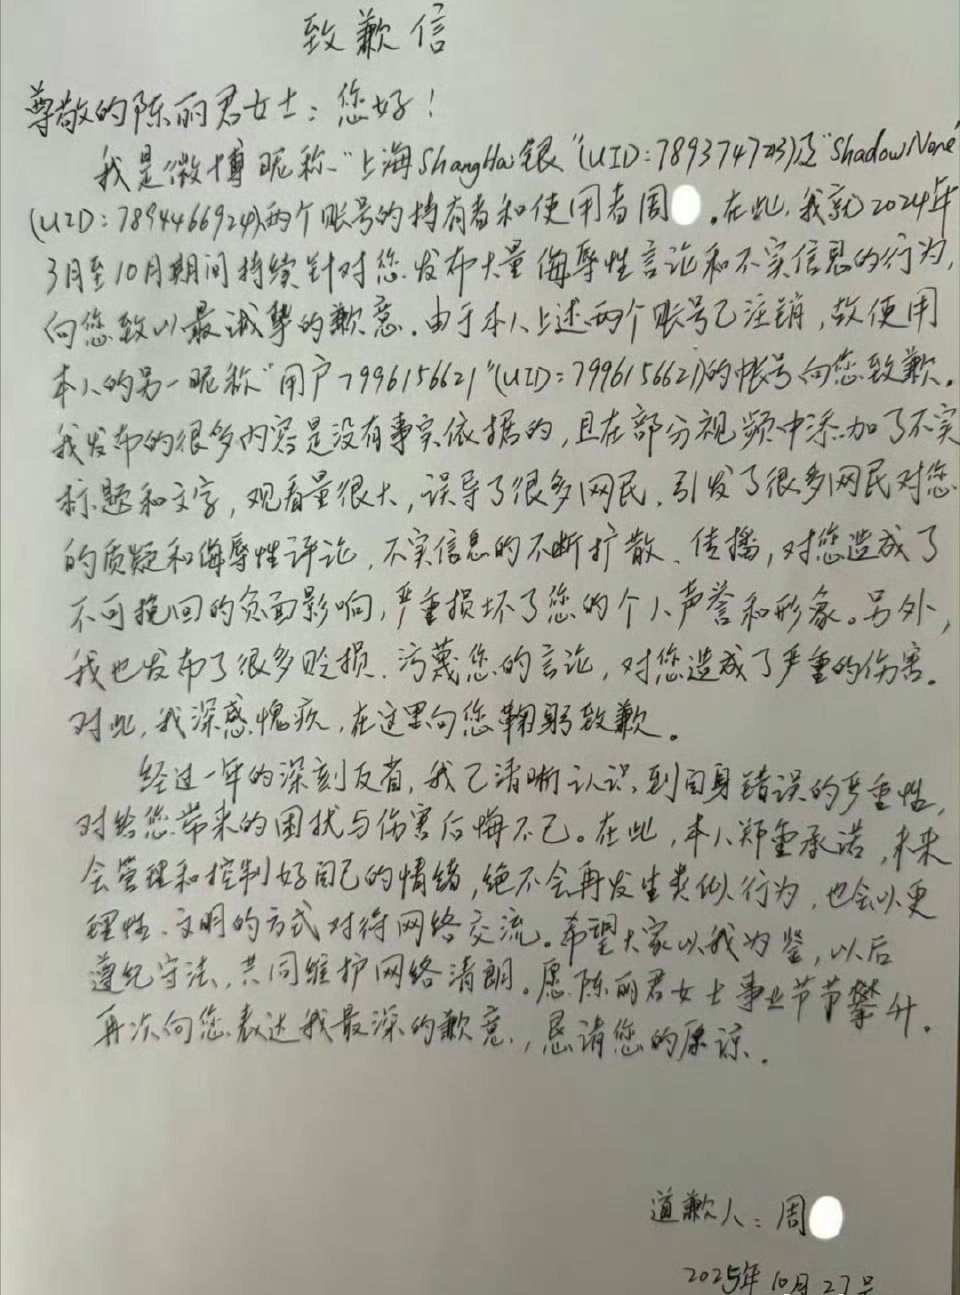 致歉信
尊敬的陈丽君女士：您好！
我是微博昵称“上海ShangHai银”(UID:7893747723)及“ShadowNone”
(UID:7894466924)两个账号的持有者和使用者周。在此，我就2024年
3月至10月期间持续针对您发布大量侮辱性言论和不实信息的行为，
向您致以最诚挚的歉意。由于本人上述两个账号已注销，故使用
本人的另一昵称“用户7996156621”(UID=7996156621)的帐号向您致歉。
我发布的很多内容是没有事实依据的，且在部分视频中添加了不实
标题和文字，观看量很大，误导了很多网民，引发了很多网民对您
的质疑和侮辱性评论，不实信息的不断扩散、传播，对您造成了
不可挽回的负面影响，严重损坏了您的个人声誉和形象。另外，
我也发布了很多贬损、污蔑您的言论，对您造成了严重的伤害。
对此，我深感愧疚，在这里向您鞠躬致歉。
经过一年的深刻反省，我已清晰认识到自身错误的严重性，
对给您带来的困扰与伤害后悔不已。在此，本人郑重承诺，未来
会管理和控制好自己的情绪，绝不会再发生类似行为，也会以更
理性、文明的方式对待网络交流。希望大家以我为鉴，以后
遵纪守法，共同维护网络清朗。愿陈丽君女士事业节节攀升。
再次向您表达我最深的歉意，恳请您的原谅。
道歉人：周
2025年10月27号